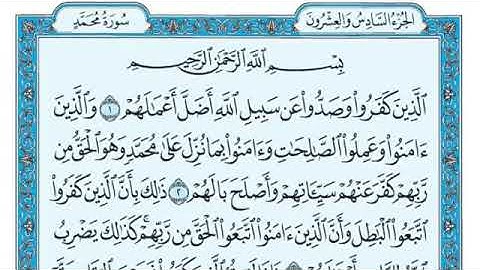 الجزء السادس والعشرون
سورة محمد
بسم الله الرحمن الرحيم
الَّذِينَ كَفَرُوا وَصَدُّوا عَن سَبِيلِ اللَّهِ أَضَلَّ أَعْمَٰلَهُمْ ١ وَالَّذِينَ
ءَامَنُوا وَعَمِلُوا الصَّٰلِحَٰتِ وَءَامَنُوا بِمَا نُزِّلَ عَلَىٰ مُحَمَّدٍ وَهُوَ الْحَقُّ مِن
رَّبِّهِمْ كَفَّرَ عَنْهُمْ سَيِّـَٔاتِهِمْ وَأَصْلَحَ بَالَهُمْ ٢ ذَٰلِكَ بِأَنَّ الَّذِينَ كَفَرُوا
اتَّبَعُوا الْبَٰطِلَ وَأَنَّ الَّذِينَ ءَامَنُوا اتَّبَعُوا الْحَقَّ مِن رَّبِّهِمْ كَذَٰلِكَ يَضْرِبُ